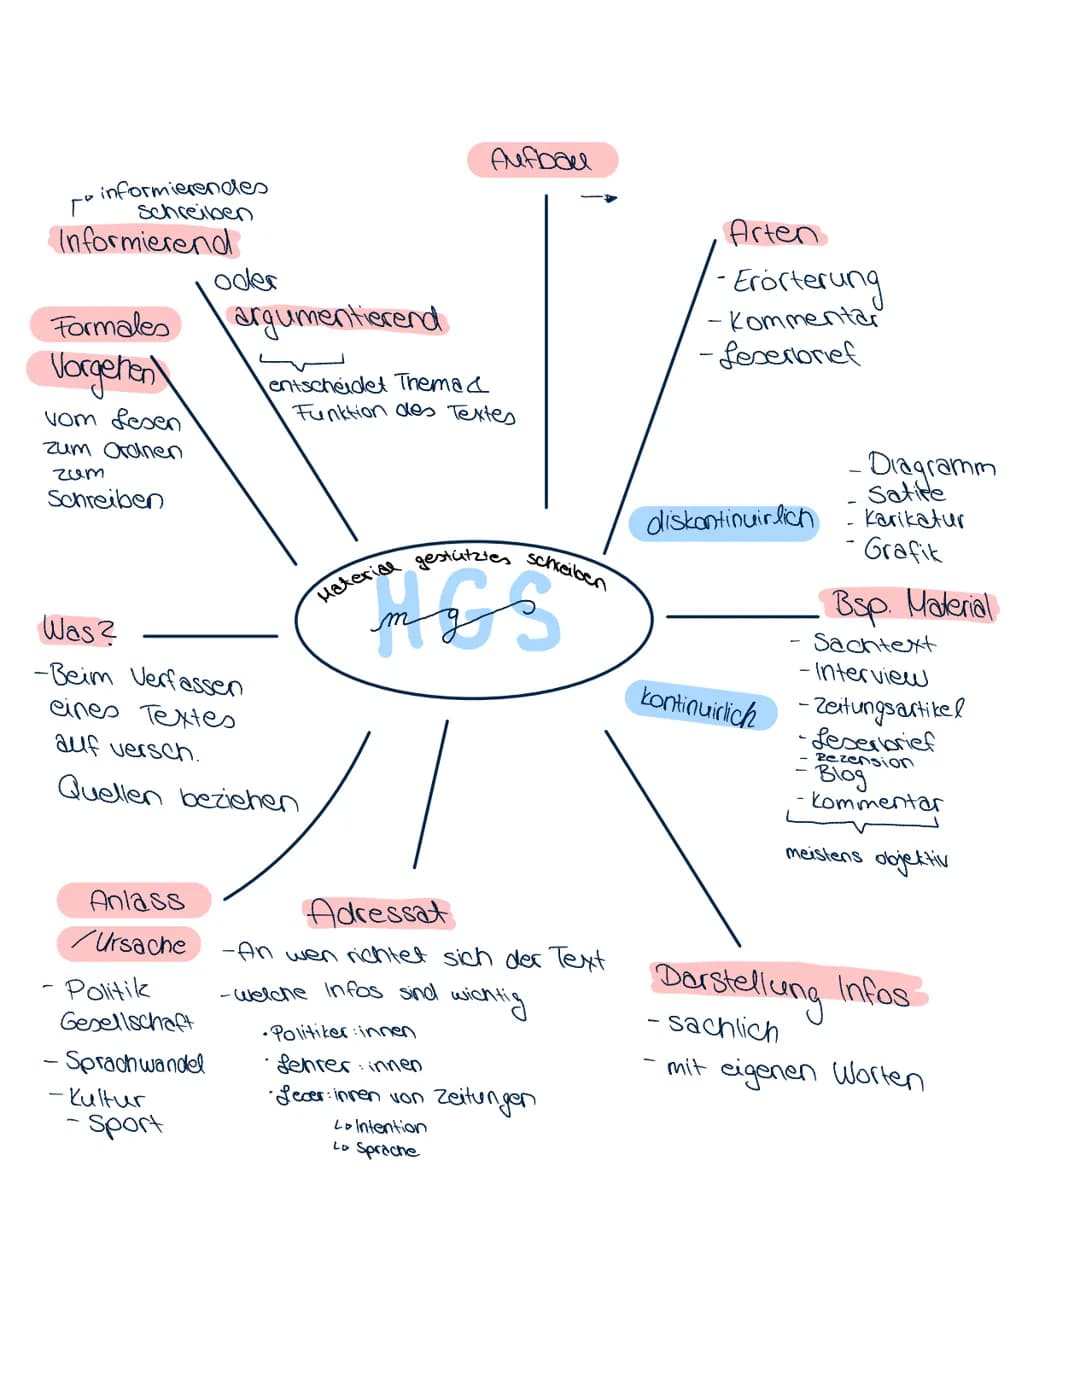 Aufbau
informierendes
schreiben
Informierend
oder
argumentierend
entscheidet Thema &
Funktion des Textes
Formales
Vorgehen
vom Lesen
zum Ordnen
zum
Schreiben
Arten
- Erörterung
- Kommentar
- Leserbrief
diskontinuirlich
- Diagramm
- Satire
- Karikatur
- Grafik
Material gestütztes schreiben
MGS
m g s
Bsp. Material
- Sachtext
- Interview
- Zeitungsartikel
- Leserbrief
- Rezension
- Blog
- Kommentar
meistens objektiv
kontinuirlich
Was?
- Beim Verfassen
eines Textes
auf versch.
Quellen beziehen
Anlass
/Ursache
- Politik
Gesellschaft
- Sprachwandel
- Kultur
- Sport
Adressat
- An wen richtet sich der Text
- welche Infos sind wichtig
• Politiker:innen
• Lehrer:innen
• Leser:innen von Zeitungen
↳ Intention
↳ Sprache
Darstellung Infos
- sachlich
- mit eigenen Worten